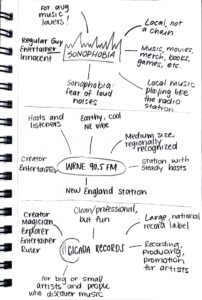 For avg
music
lovers
Local, not
a chain
Regular Guy
Entertainer
Innocent
SONOPHOBIA
Music, movies,
merch, books,
games, etc.
Sonophobia:
fear of loud
noises
Local music
playing like
the radio
station
Hosts and
listeners
Earthy, cool
NE vibe
Medium size,
regionally
recognized
Creator
Entertainer
WRNE 90.5 FM
Station with
steady hosts
New England Station
Creator
Magician
Explorer
Entertainer
Ruler
Clean/professional,
but fun
Large, national
record label
CICADA RECORDS
Recording,
producing,
promotion
for artists
For big or small
artists and people
who discover music